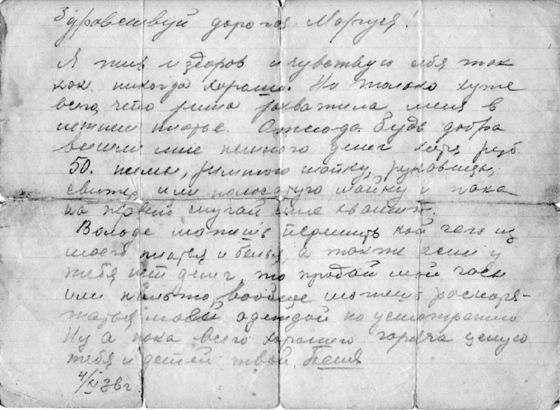 Здравствуй дорогая Маруся!
Я жив и здоров и чувствую себя так
как никогда хорошо. Но только хуже
всего, что зима захватила меня в
летнем платье. Будь добра
вышли мне немного денег хотя руб
50. зимнюю шапку, рукавицы,
свитер или полосатую майку и пока
на первый случай мне хватит.
Володе можешь перешить кой чего из
моего платья и белья, а также если у
тебя нет денег, то продай мои часы
или пальто, вообще можешь распоря-
жаться моей одеждой по усмотрению
Ну а пока всего хорошего горячо целую
тебя и детей твой
4/XI 38г.